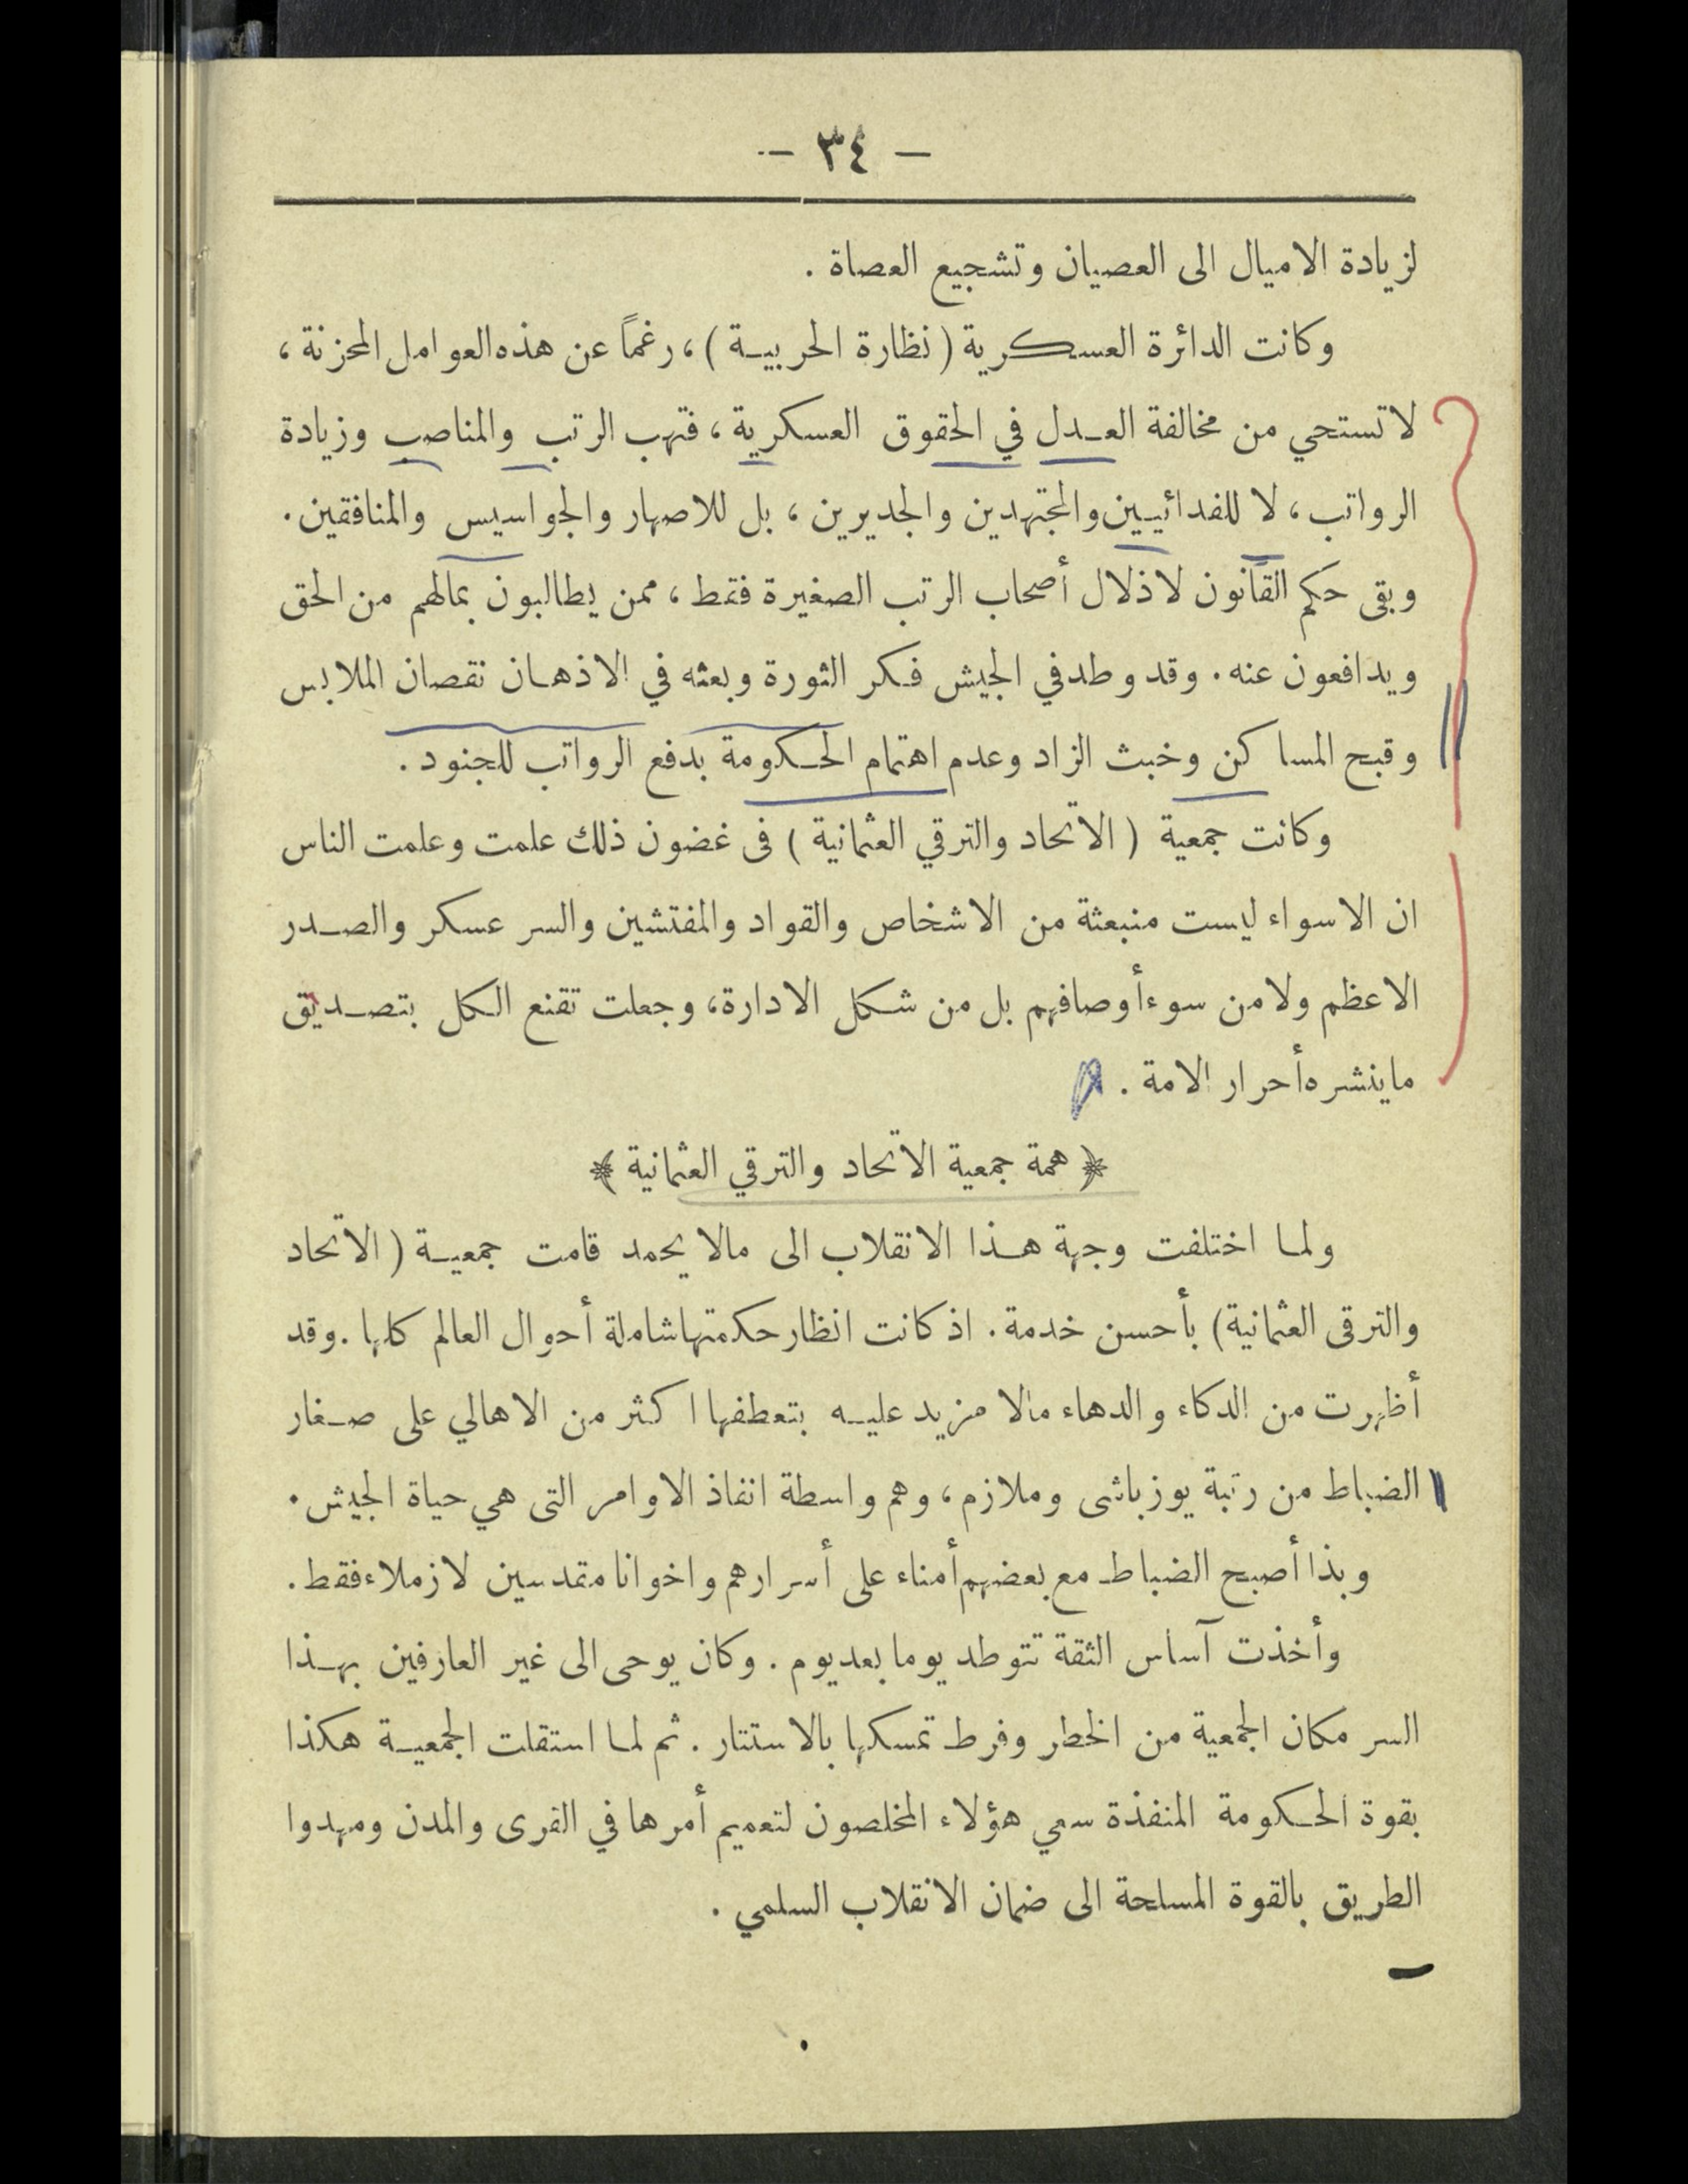 — ٣٤ —
لزيادة الاميال الى العصيان وتشجيع العصاة .
وكانت الدائرة العسكرية (نظارة الحربية)، رغماً عن هذه العوامل المحزنة،
لا تستحي من مخالفة العدل في الحقوق العسكرية، فتهب الرتب والمناصب وزيادة
الرواتب، لا للفدائيين والمجتهدين والجديرين، بل للاصهار والجواسيس والمنافقين.
وبقى حكم القانون لاذلال أصحاب الرتب الصغيرة فقط، ممن يطالبون بمالهم من الحق
ويدافعون عنه. وقد وطد في الجيش فكر الثورة وبعثه في الاذهان نقصان الملابس
وقبح المساكن وخبث الزاد وعدم اهتمام الحكومة بدفع الرواتب للجنود.
وكانت جمعية (الاتحاد والترقي العثمانية) فى غضون ذلك علمت وعلمت الناس
ان الاسواء ليست منبعثة من الاشخاص والقواد والمفتشين والسر عسكر والصدر
الاعظم ولا من سوء أوصافهم بل من شكل الادارة، وجعلت تقنع الكل بتصديق
ما ينشره أحرار الامة .
﴿ همة جمعية الاتحاد والترقي العثمانية ﴾
ولما اختلفت وجهة هذا الانقلاب الى مالا يحمد قامت جمعية (الاتحاد
والترقى العثمانية) بأحسن خدمة. اذ كانت انظار حكمتها شاملة أحوال العالم كلها. وقد
أظهرت من الدكاء والدهاء مالا مزيد عليه بتعطفها اكثر من الاهالي على صغار
الضباط من رتبة يوزباشى وملازم، وهم واسطة انفاذ الاوامر التى هي حياة الجيش.
وبذا أصبح الضباط مع بعضهم أمناء على أسرارهم واخوانا متمدسين لا زملاء فقط.
وأخذت آساس الثقة تتوطد يوما بعد يوم. وكان يوحى الى غير العارفين بهذا
السر مكان الجمعية من الخطر وفرط تمسكها بالاستتار. ثم لما استقلت الجمعية هكذا
بقوة الحكومة المنفذة سعي هؤلاء المخلصون لتعميم أمرها في القرى والمدن ومهدوا
الطريق بالقوة المسلحة الى ضمان الانقلاب السلمي .